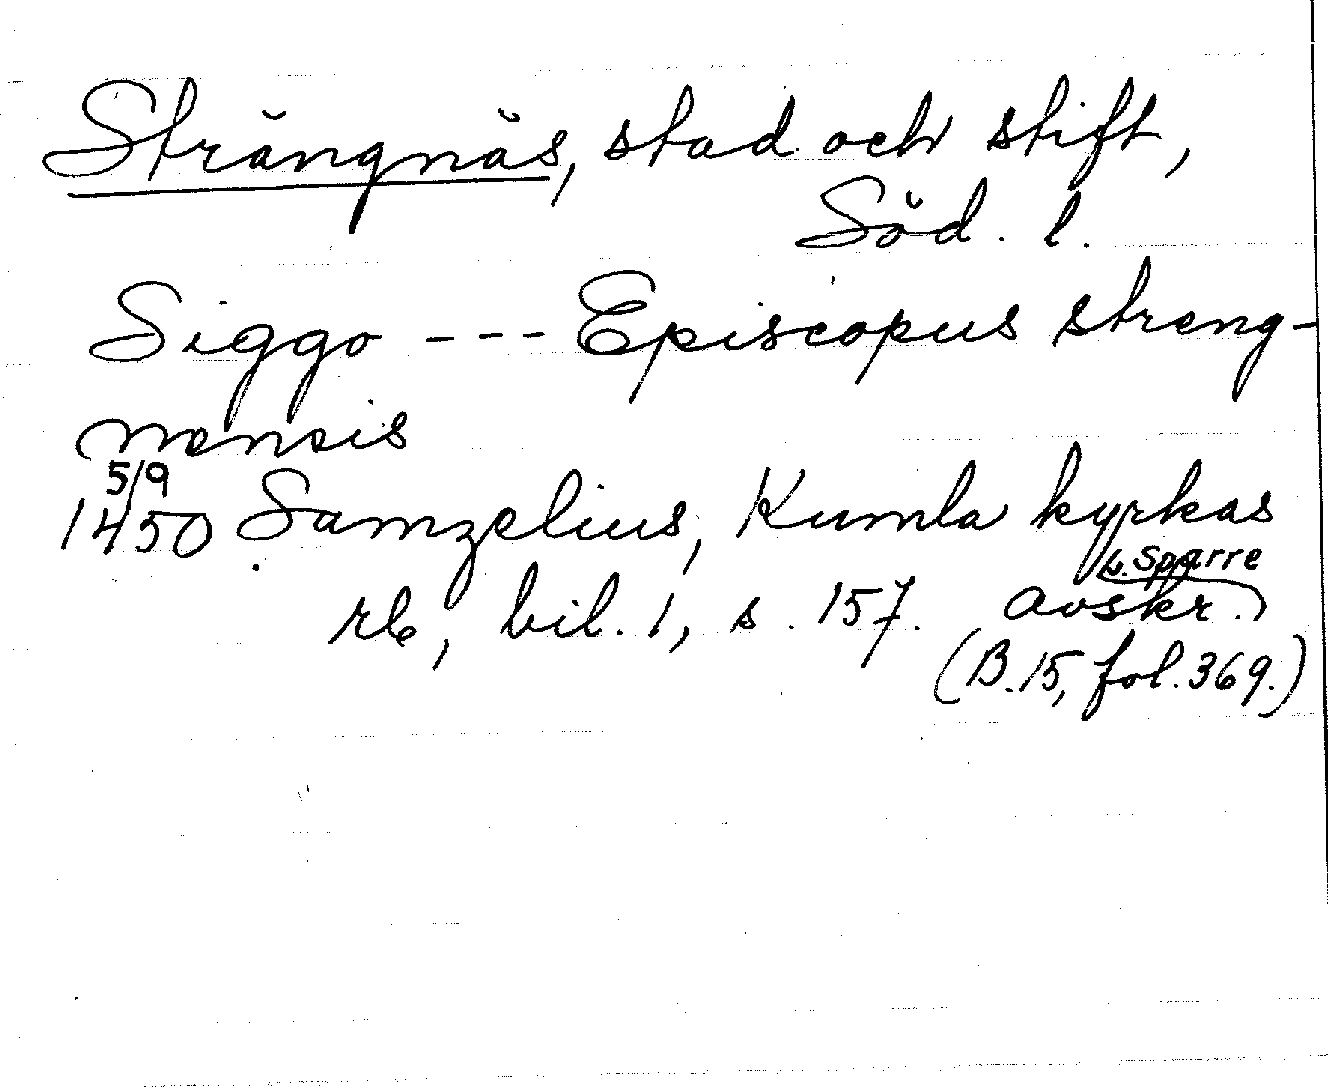 Strängnäs, stad och stift,
Söd. l.
Siggo --- Episcopus streng-
nensis
5/9
1450 Samzelius, Kumla kyrkas
v. Sparre
rb, bil. 1, s. 157. avskr.
(B.15, fol. 369.)